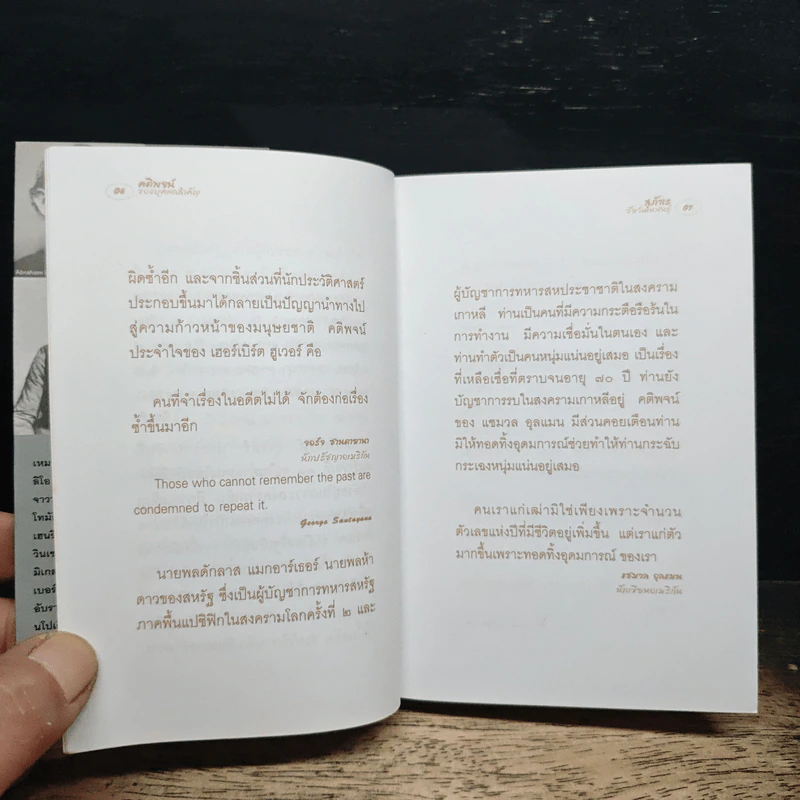 คติพจน์
ของบุคคลสำคัญ
ผิดซ้ำอีก และจากชิ้นส่วนที่นักประวัติศาสตร์
ประกอบขึ้นมาได้กลายเป็นปัญญานำทางไป
สู่ความก้าวหน้าของมนุษยชาติ คติพจน์
ประจำใจของ เฮอร์เบิร์ต ฮูเวอร์ คือ
คนที่จำเรื่องในอดีตไม่ได้ จักต้องก่อเรื่อง
ซ้ำขึ้นมาอีก
จอร์จ ซานตายานา
นักปรัชญาอเมริกัน
Those who cannot remember the past are
condemned to repeat it.
George Santayana
นายพลดักลาส แมกอาร์เธอร์ นายพลห้า
ดาวของสหรัฐ ซึ่งเป็นผู้บัญชาการทหารสหรัฐ
ภาคพื้นแปซิฟิกในสงครามโลกครั้งที่ ๒ และ
ผู้บัญชาการทหารสหประชาชาติในสงคราม
เกาหลี ท่านเป็นคนที่มีความกระตือรือร้นใน
การทำงาน มีความเชื่อมั่นในตนเอง และ
ท่านทำตัวเป็นคนหนุ่มแน่นอยู่เสมอ เป็นเรื่อง
ที่เหลือเชื่อที่ตราบจนอายุ ๗๐ ปี ท่านยัง
บัญชาการรบในสงครามเกาหลีอยู่ คติพจน์
ของ แซมวล อุลแมน มีส่วนคอยเตือนท่าน
มิให้ทอดทิ้งอุดมการณ์ช่วยทำให้ท่านกระฉับ
กระเฉงหนุ่มแน่นอยู่เสมอ
คนเราแก่เฒ่ามิใช่เพียงเพราะจำนวน
ตัวเลขแห่งปีที่มีชีวิตอยู่เพิ่มขึ้น แต่เราแก่ตัว
มากขึ้นเพราะทอดทิ้งอุดมการณ์ ของเรา
แซมวล อุลแมน
นักเขียนอเมริกัน